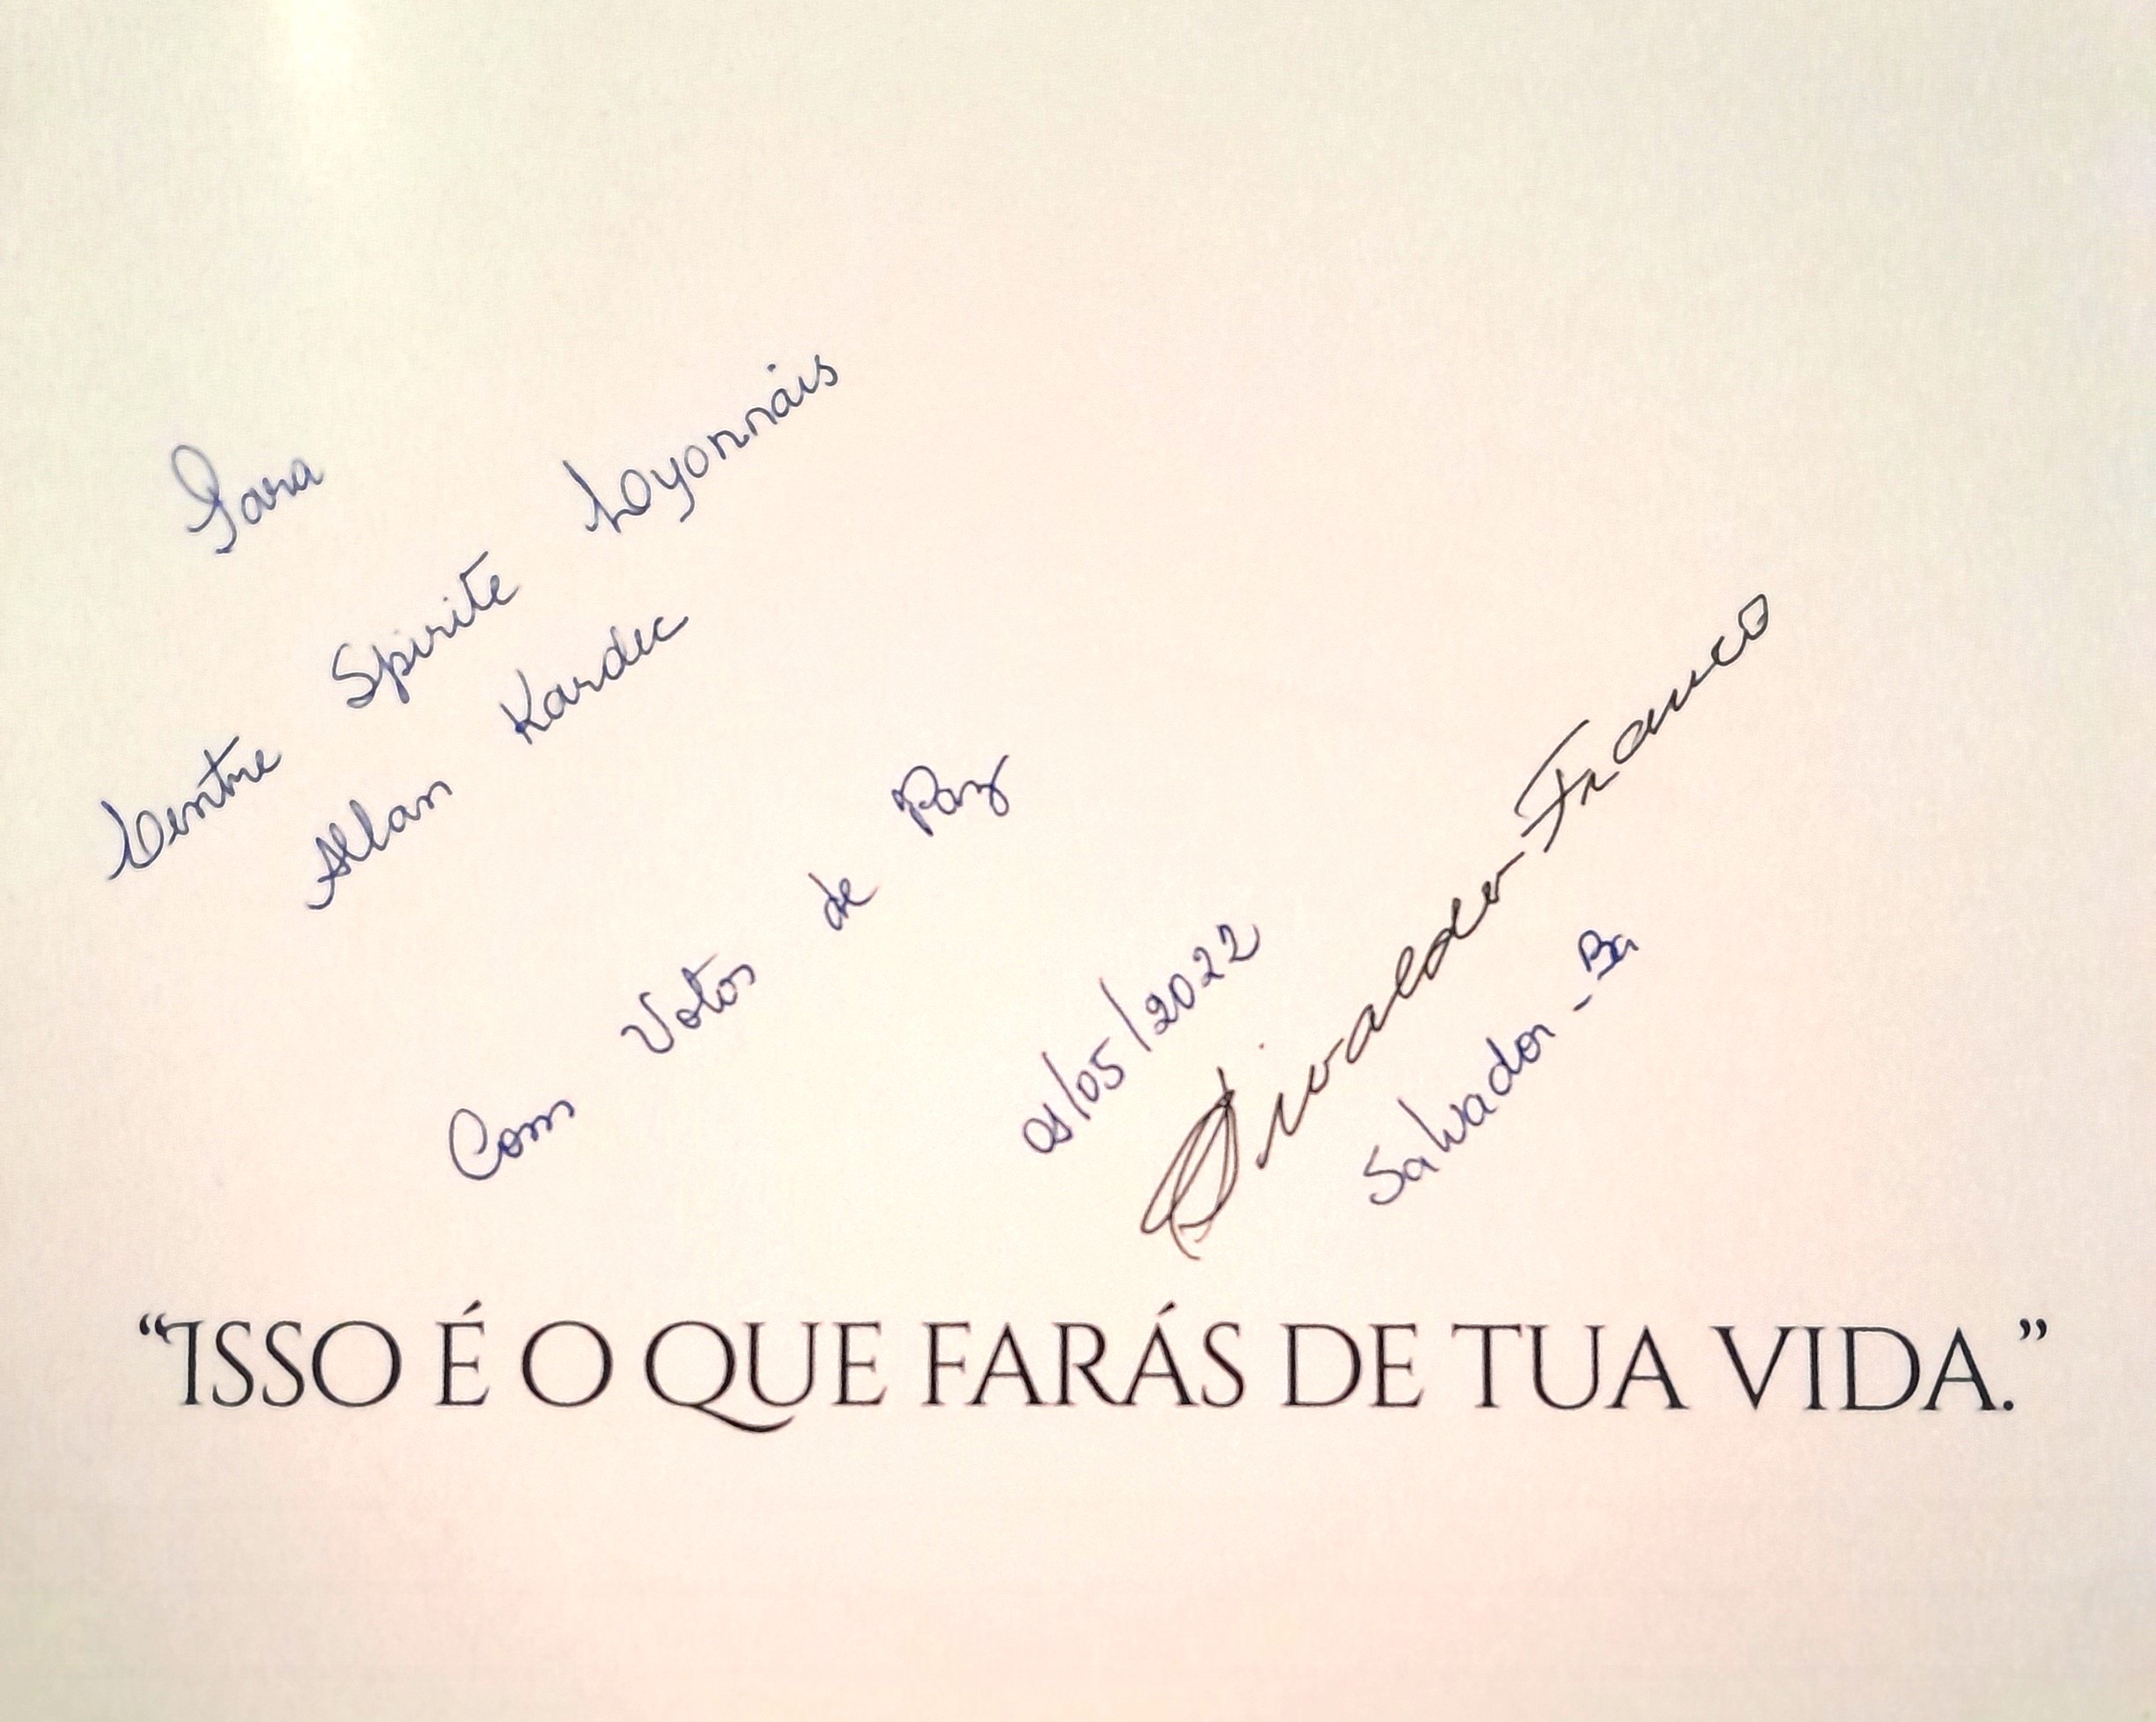 Para
Centre Spirite Lyonnais
Allan Kardec
Com Votos de Paz
01/05/2022
Divaldo Franco
Salvador - Ba
“ISSO É O QUE FARÁS DE TUA VIDA.”